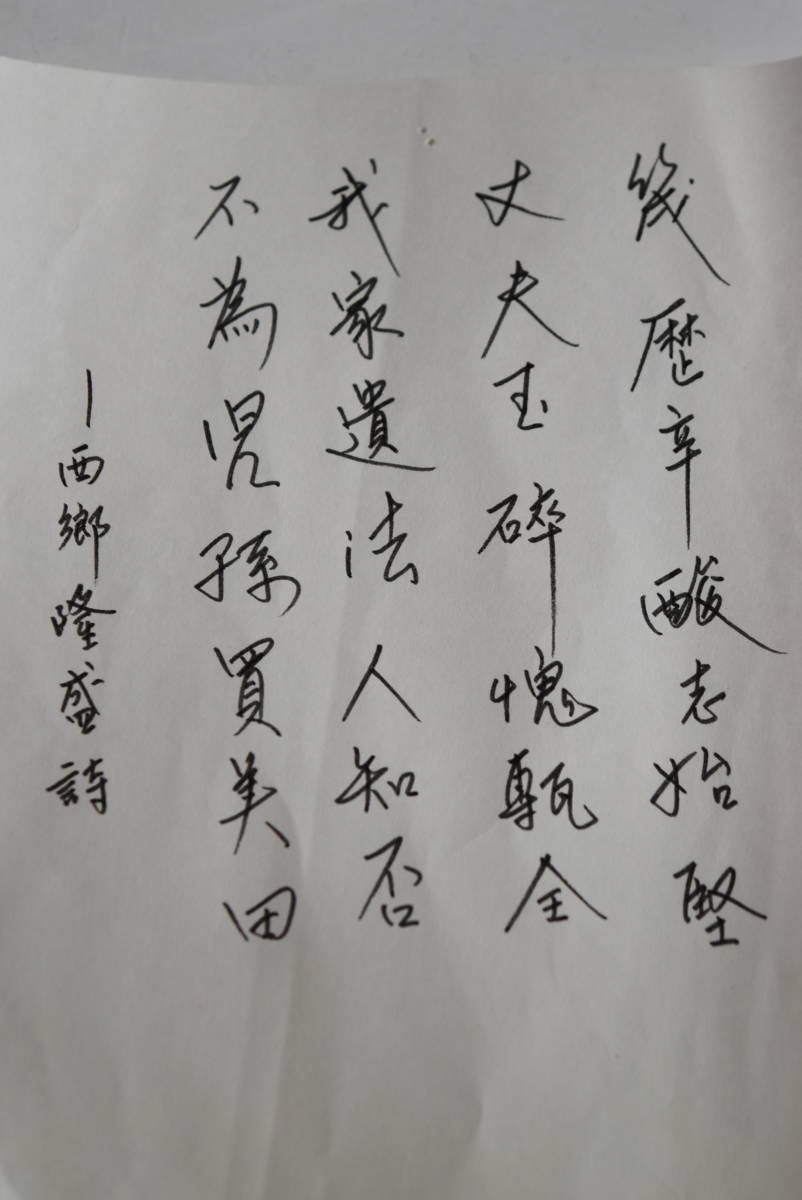 幾歷辛酸志始堅
丈夫玉碎愧甎全
我家遺法人知否
不為児孫買美田
—西鄉隆盛詩